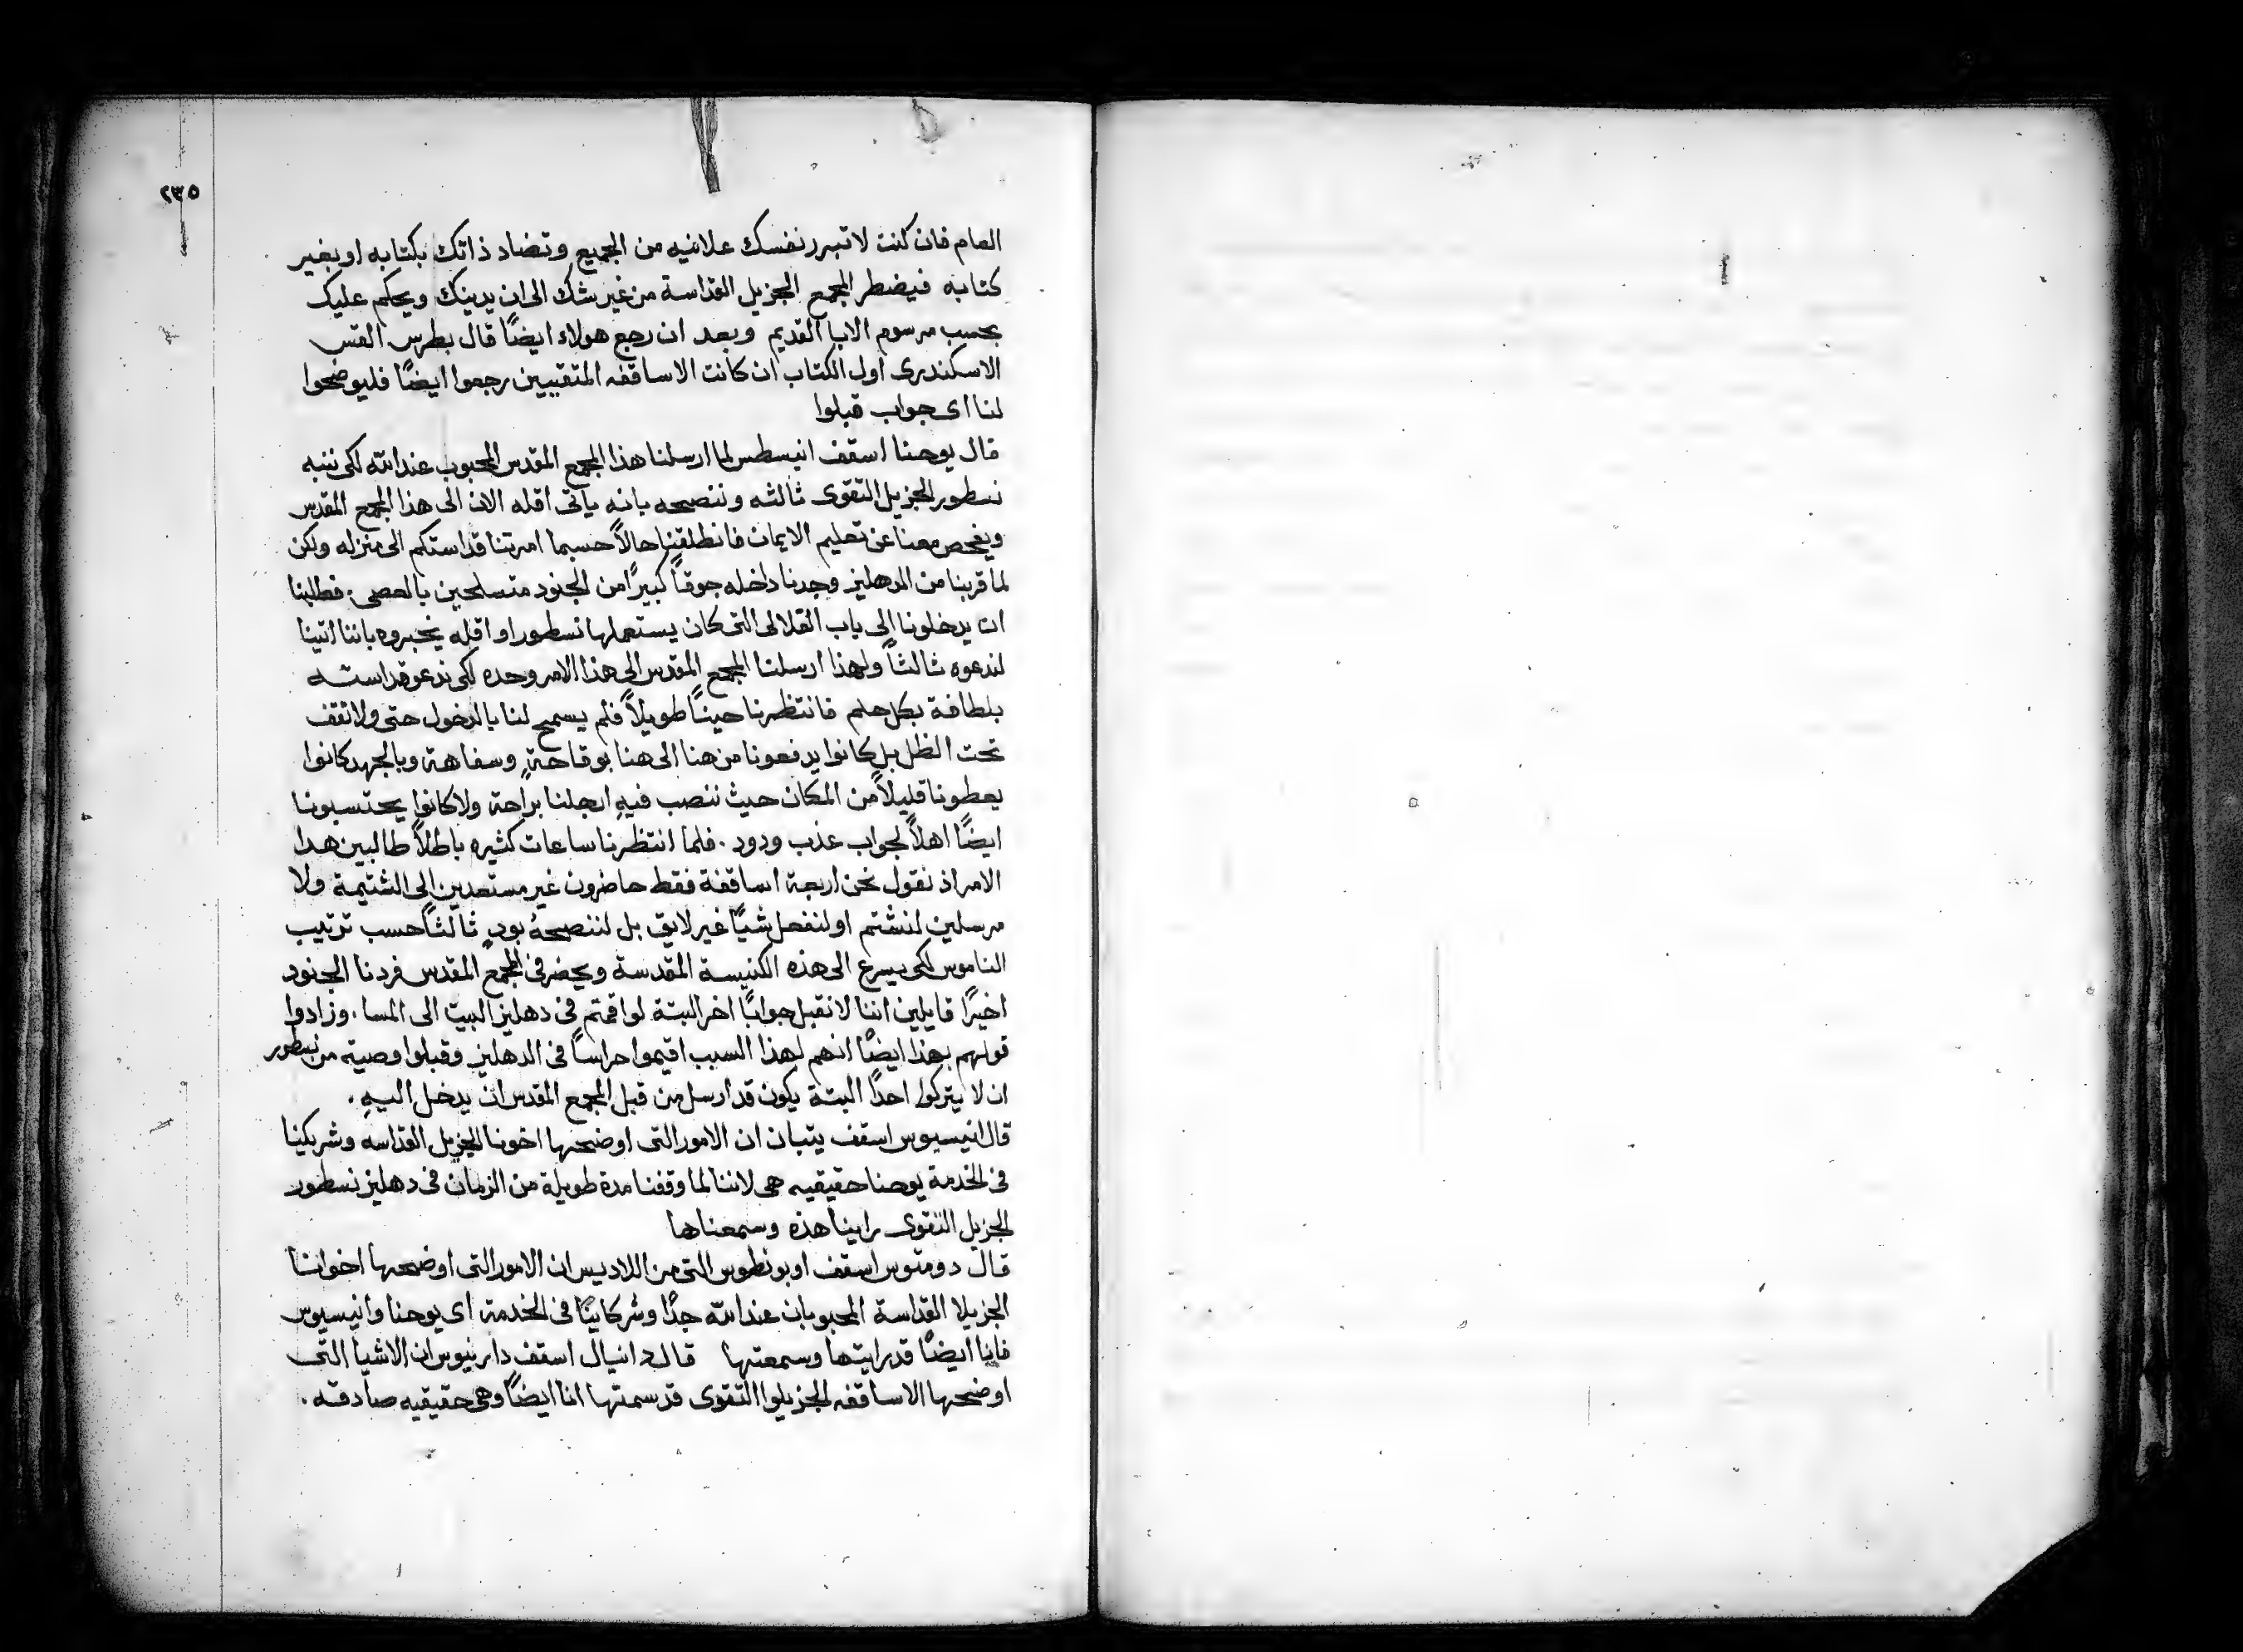 ٢٣٥
العام فان كنت لا تبرر نفسك علانيه من الجميع وتضاد ذاتك بكتابه او بغير
كتابه فيضطر المجمع الجزيل القداسة من غير شك الى ان يدينك ويحكم عليك
بحسب مرسوم الابا القديم وبعد ان رجع هولاء ايضًا قال بطرس القس
الاسكندرى اول الكتاب ان كانت الاساقفه المتقيين رجعوا ايضًا فليوضحوا
لنا اى جواب قبلوا
قال يوحنا اسقف انيسطس لما ارسلنا هذا المجمع المقدس المحبوب عند الله لكى ننبه
نسطور الجزيل التقوى ثالثه وننصحه بانه ياتى اقله الان الى هذا المجمع المقدس
ويفحص معنا عن تعليم الايمان فانطلقنا حالاً حسبما امرتنا قداستكم الى منزله ولكن
لما قربنا من الدهليز وجدنا داخله جوقاً كبيرًا من الجنود متسلحين بالعصى. فطالبنا
ان يدخلونا الى باب القلالى التى كان يستعملها نسطور او اقله يخبروه باننا اتينا
لندعوه ثالثاً ولهذا ارسلنا المجمع المقدس الى هذا الامر وحده لكى ندعو قداسته
بلطافة بكل حلم فانتظرنا حينًا طويلاً فلم يسمح لنا بالدخول حتى ولا نقف
تحت الظل بل كانوا يدفعونا من هنا الى هنا بوقاحةٍ وسفاهة وبالجهد كانوا
يعطونا قليلاً من المكان حيث ننصب فيهِ ارجلنا براحة ولا كانوا يحتسبونا
ايضًا اهلاً لجواب عذب ودود. فلما انتظرنا ساعات كثيره باطلاً طالبين هدا
الامر اذ نقول نحن اربعة اساقفة فقط حاضرون غير مستعدين الى الشتيمة ولا
مرسلين لنشتم او لنفعل شيًا غير لايق بل لننصحهُ بودٍ ثالثاً حسب ترتيب
الناموس لكى يسرع الى هذه الكنيسة المقدسة ويحضر فى المجمع المقدس فردنا الجنود
اخيرًا قايلين اننا لا نقبل جوابًا اخر البتة لو اقمتم فى دهليز البيت الى المسا. وزادوا
قولهم بهذا ايضًا انهم لهذا السبب اقيموا حراساً فى الدهليز وقبلوا وصيته من نسطور
ان لا يتركوا احدًا البتة يكون قد ارسل من قبل المجمع المقدس ان يدخل اليهِ.
قال انيسيوس اسقف يتبان ان الامور التى اوضحها اخونا الجزيل القداسه وشريكنا
فى الخدمة يوحنا حقيقيه هى لاننا لما وقفنا مدة طويلة من الزمان فى دهليز نسطور
الجزيل التقوى راينا هذه وسمعناها
قال دومتوس اسقف اوبونطوس التى من اللاديس ان الامور التى اوضحها اخواننا
الجزيلا القداسة المحبوبان عند الله جدًا وشركاينا فى الخدمة اى يوحنا وانيسيوس
فانا ايضًا قد رايتها وسمعتها قال دانيال اسقف دارنيوس ان الاشيا التى
اوضحها الاساقفه الجزيلوا التقوى قد سمعتها انا ايضًا وهى حقيقيه صادقه.